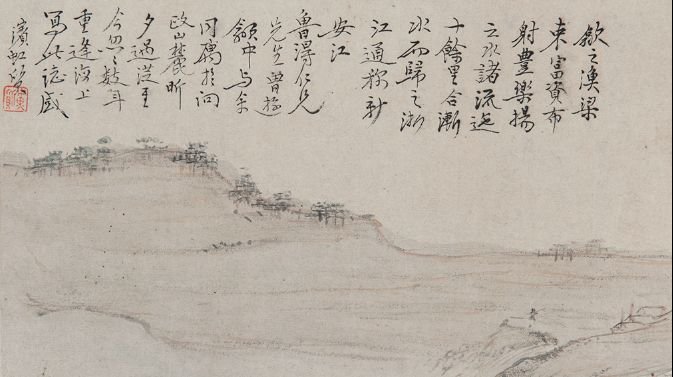 歙之漁梁
束富資布
射豐樂揚
之水諸流迤
十餘里合漸
水而歸之浙
江通称新
安江
魯得仁兄
先生曾游
歙中与余
同寓於问
政山麓昕
夕過從至
今忽〻數年
重逢滬上
寫此誌感
濱虹